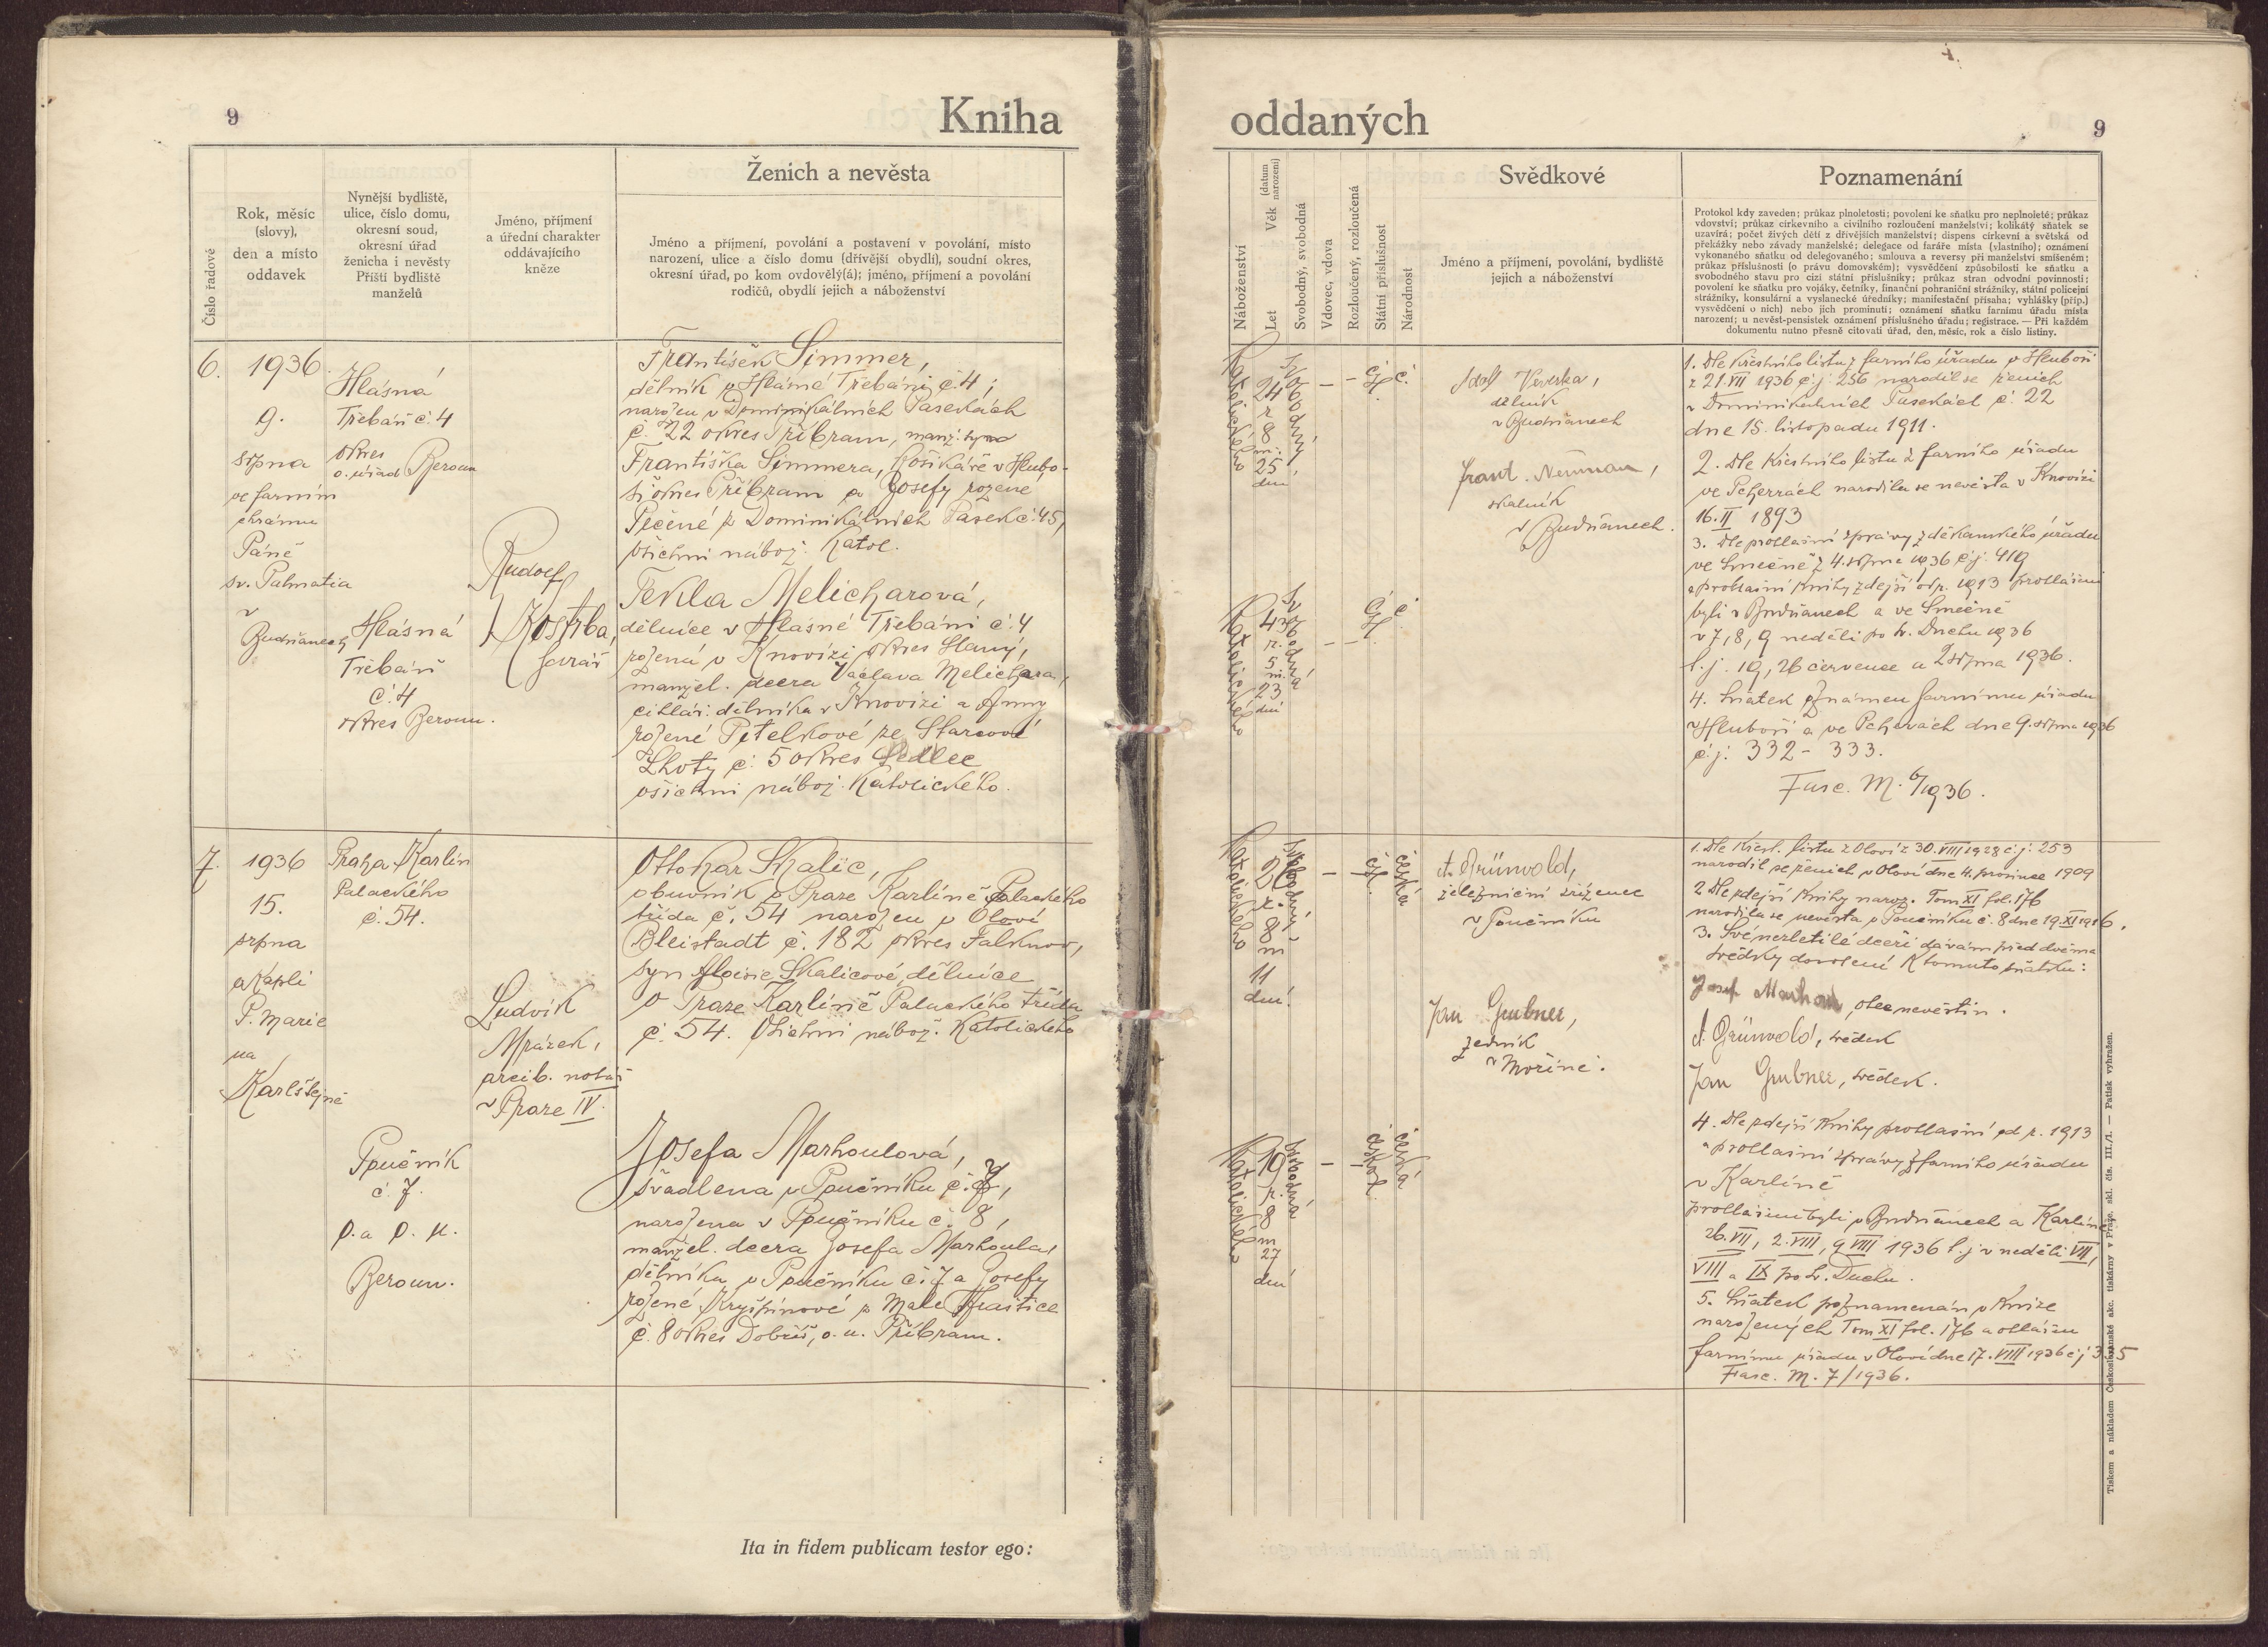 9
Kniha
Ženich a nevěsta
Číslo řadové
Rok, měsíc
(slovy),
den a místo
oddavek
Nynější bydliště,
ulice, číslo domu,
okresní soud,
okresní úřad
ženicha i nevěsty
Příští bydliště
manželů
Jméno, příjmení
a úřední charakter
oddávajícího
kněze
Jméno a příjmení, povolání a postavení v povolání, místo
narození, ulice a číslo domu (dřívější obydlí), soudní okres,
okresní úřad, po kom ovdověl(á); jméno, příjmení a povolání
rodičů, obydlí jejich a náboženství
6.
1936
9.
srpna
ve farním
chrámu
Páně
sv. Palmatia
v
Budňanech
Hlásná
Třebáň č. 4
okres
o. úřad Beroun
Hlásná
Třebáň
č. 4
okres Beroun.
Rudolf
Kostrba,
farář
František Simmer,
dělník v Hlásné Třebáni č. 4;
narozen v Dominikálních Pasekách
č. 22 okres Příbram, manž. syn
Františka Simmera, košikáře v Hlubo-
ši okres Příbram a Josefy rozené
Pečené z Dominikálních Pasek č. 45,
všichni nábož. katol.
Tekla Melicharová,
dělnice v Hlásné Třebáni č. 4
rozená v Knovízi okres Slaný,
manžel. dcera Václava Melichara,
cihlář. dělníka v Knovízi a Anny
rozené Petelkové ze Starcové
Lhoty č. 5 okres Sedlec
všichni nábož. katolického.
7.
1936
15.
srpna
v kapli
P. Marie
na
Karlštejně
Praha Karlín
Palackého
č. 54.
Poučník
č. 7.
p. a o. u.
Beroun.
Ludvík
Mrázek,
arcib. notář
v Praze IV.
Ottokar Skalic,
obuvník v Praze Karlíně Palackého
třída č. 54 narozen v Olově
Bleistadt č. 182 okres Falknov,
syn Aloisie Skalicové, dělnice
v Praze Karlíně Palackého třída
č. 54. Všichni nábož. katolického
Josefa Marhoulová,
švadlena v Poučníku č. 7,
narozena v Poučníku č. 8,
manžel. dcera Josefa Marhoula,
dělníka v Poučníku č. 7 a Josefy
rozené Kryšpínové z Malé Hraštice
č. 8 okres Dobříš, o. u. Příbram.
Ita in fidem publicam testor ego:
oddaných
9
Náboženství
Let Věk (datum narození)
Svobodný, svobodná
Vdovec, vdova
Rozloučený, rozloučená
Státní příslušnost
Národnost
Svědkové
Jméno a příjmení, povolání, bydliště
jejich a náboženství
Poznamenání
Protokol kdy zaveden; průkaz plnoletosti; povolení ke sňatku pro neplnoleté; průkaz
vdovství; průkaz církevního a civilního rozloučení manželství; kolikátý sňatek se
uzavírá; počet živých dětí z dřívějších manželství; dispens církevní a světská od
překážky nebo závady manželské; delegace od faráře místa (vlastního); oznámení
vykonaného sňatku od delegovaného; smlouva a reversy při manželství smíšeném;
průkaz příslušnosti (o právu domovském); vysvědčení způsobilosti ke sňatku a
svobodného stavu pro cizí státní příslušníky; průkaz stran odvodní povinnosti;
povolení ke sňatku pro vojáky, četníky, finanční pohraniční strážníky, státní policejní
strážníky, konsulární a vyslanecké úředníky; manifestační přísaha; vyhlášky (příp.)
vysvědčení o nich) nebo jich prominutí; oznámení sňatku farnímu úřadu místa
narození; u nevěst-pensistek oznámení příslušného úřadu; registrace. — Při každém
dokumentu nutno přesně citovati úřad, den, měsíc, rok a číslo listiny.
Katolického
24
r
8
m.
25
dní
Svobodný
- -
Č.
Adolf Veverka,
dělník
v Budňanech
Frant. Neuman,
skalník
v Budňanech.
Katolického
43
r.
5
m.
23
dní
Svobodná
- -
1. Dle křestního listu z farního úřadu v Hluboši
z 21. VII 1936 č. j. 256 narodil se ženich
v Dominikálních Pasekách č. 22
dne 15. listopadu 1911.
2. Dle křestního listu z farního úřadu
ve Pcherách narodila se nevěsta v Knovízi
16. II 1893
3. Dle prohlašní zprávy z děkanského úřadu
ve Smečně z 4. srpna 1936 č. j. 419
a prohlašní knihy zdejší od r. 1913 prohlášeni
byli v Budňanech a ve Smečně
v 7, 8, 9 neděli po sv. Duchu 1936
t. j. 19, 26 července a 2 srpna 1936.
4. Sňatek oznámen farnímu úřadu
v Hluboši a ve Pcherách dne 9. srpna 1936
č. j. 332 - 333.
Fasc. M. 6/1936.
Katolického
26
r.
8
m
11
dní.
Svobodný
-
česká
A. Grünwold,
železniční zřízenec
v Poučníku
Jan Grubner,
zedník
v Mořině.
Katolického
19
r.
8
m
27
dní
Svobodná
-
česká
1. Dle křest. listu z Olova z 30. VIII 1928 č. j. 253
narodil se ženich v Olově dne 4. prosince 1909
2. Dle zdejší knihy naroz. Tom XI fol. 176
narodila se nevěsta v Poučníku č. 8 dne 19. XI 1916.
3. Své nezletilé dceři dávám před dvěma
svědky dovolení k tomuto sňatku:
Josef Marhoul, otec nevěstin.
A. Grünwold, svědek
Jan Grubner, svědek.
4. Dle zdejší knihy prohlašní od r. 1913
a prohlašní zprávy z farního úřadu
v Karlíně
prohlášeni byli v Budňanech a Karlíně
26. VII, 2. VIII, 9 VIII 1936 t. j. v neděli VII,
VIII a IX po sv. Duchu.
5. Sňatek poznamenán v knize
narozených Tom XI fol. 176 a ohlášen
farnímu úřadu v Olově dne 17. VIII 1936 č j 335
Fasc. M. 7/1936.
Tiskem a nákladem Českoslovanské akc. tiskárny v Praze. skl. čís. III./1. — Patisk vyhražen.